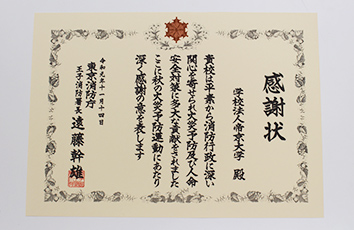 感謝状
学校法人帝京大学 殿
貴校は平素から消防行政に深い
関心を寄せられ火災予防及び人命
安全対策に多大な貢献をされました
ここに秋の火災予防運動にあたり
深く感謝の意を表します
令和元年十一月十四日
東京消防庁
王子消防署長 遠藤幹雄